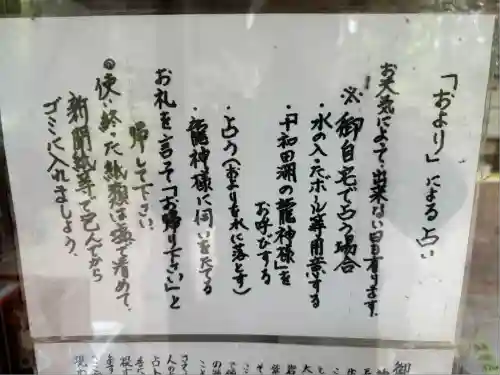 「およリ」による占い
お天気によって出来ない日も有ります。
※御自宅で占う場合
・水の入ったボール等用意する
・「十和田湖の龍神様」を
お呼びする
・占う(およりを水に落とす)
・龍神様に伺いをたてる
お礼を言って「お帰り下さい」と
帰して下さい。
◎使い終った紙類は塩で清めて、
新聞紙等で包んでから
ゴミに入れましょう。